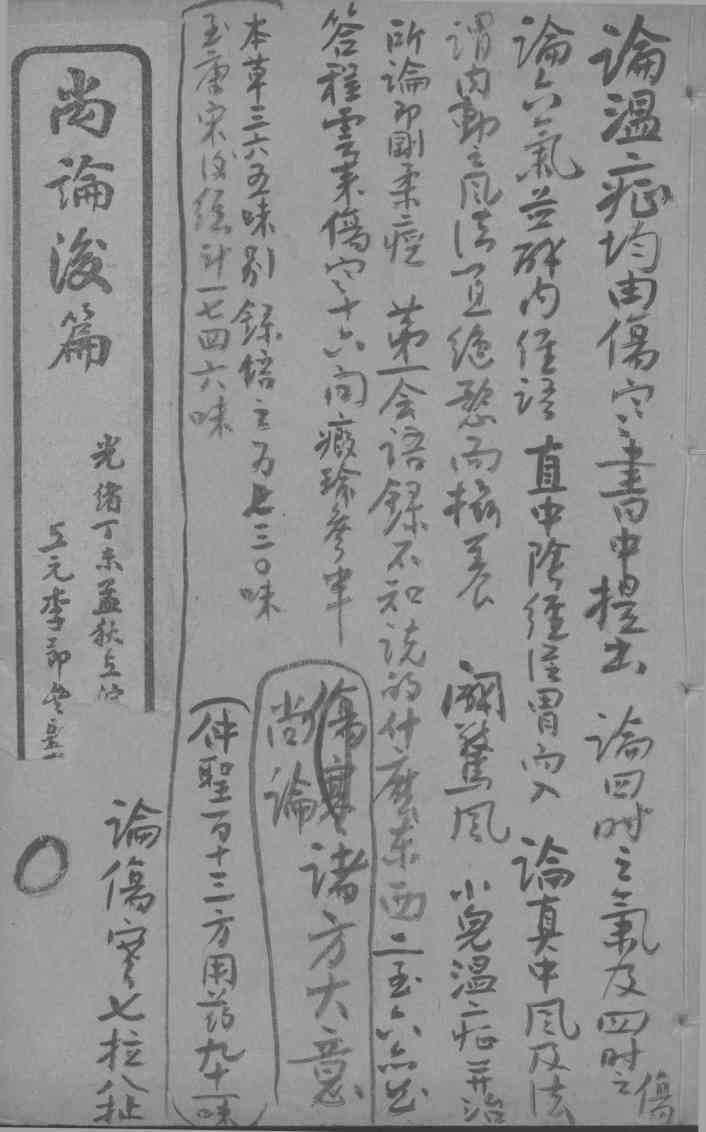 論溫症均由傷寒書中提出 論四時之氣及四時之傷
論六氣並酥內經語 直中陰經從胃而入 論真中風及法
謂內動之風法宜絕慾而擯养 闢驚風 小兒溫症并治
所論即剛柔痙 第一会語錄不知說的什麼东西二至六亦然
答程雲來傷寒十六問 瘕瑜參半
本草三六五味別錄倍之为七三〇味
至唐宋後經計一七四六味
傷寒
尚論 諸方大意
仲聖一百十三方用药九十一味
尚論後篇
光緒丁未孟秋
上元李節
論傷寒七拉八扯